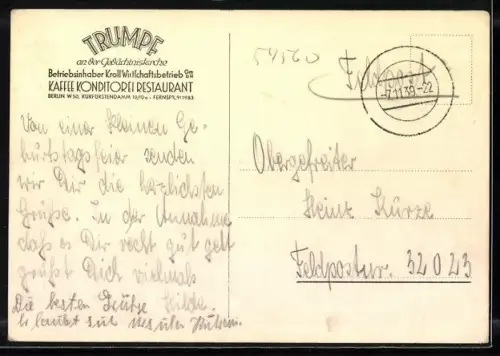 TRUMPF
an der Gedächtniskirche
Betriebsinhaber Kroll Wirtschaftsbetrieb GmbH
KAFFEE KONDITOREI RESTAURANT
BERLIN W 50, KURFÜRSTENDAMM FERNSPR. 91 7983
54560
Feldpost
-7.11.39.-22
Von einer kleinen Ge-
burtstagsfeier senden
wir Dir die herzlichsten
Grüße. In der Annahme
daß es Dir recht gut geht
grüßt Dich vielmals
Hilde.
Die besten Grüße
Obergefreiter
Heinz Kürze
Feldpostnr. 32023